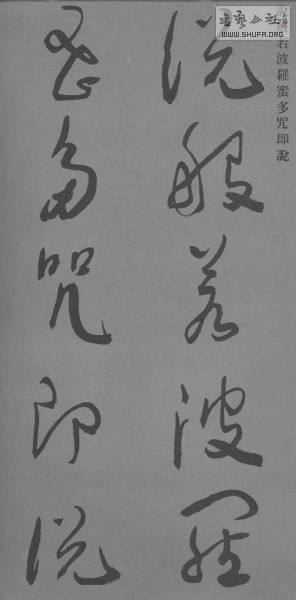 書藝公社
WWW.SHUFA.ORG
若波羅蜜多咒即說
說般若波羅
蜜多咒即說